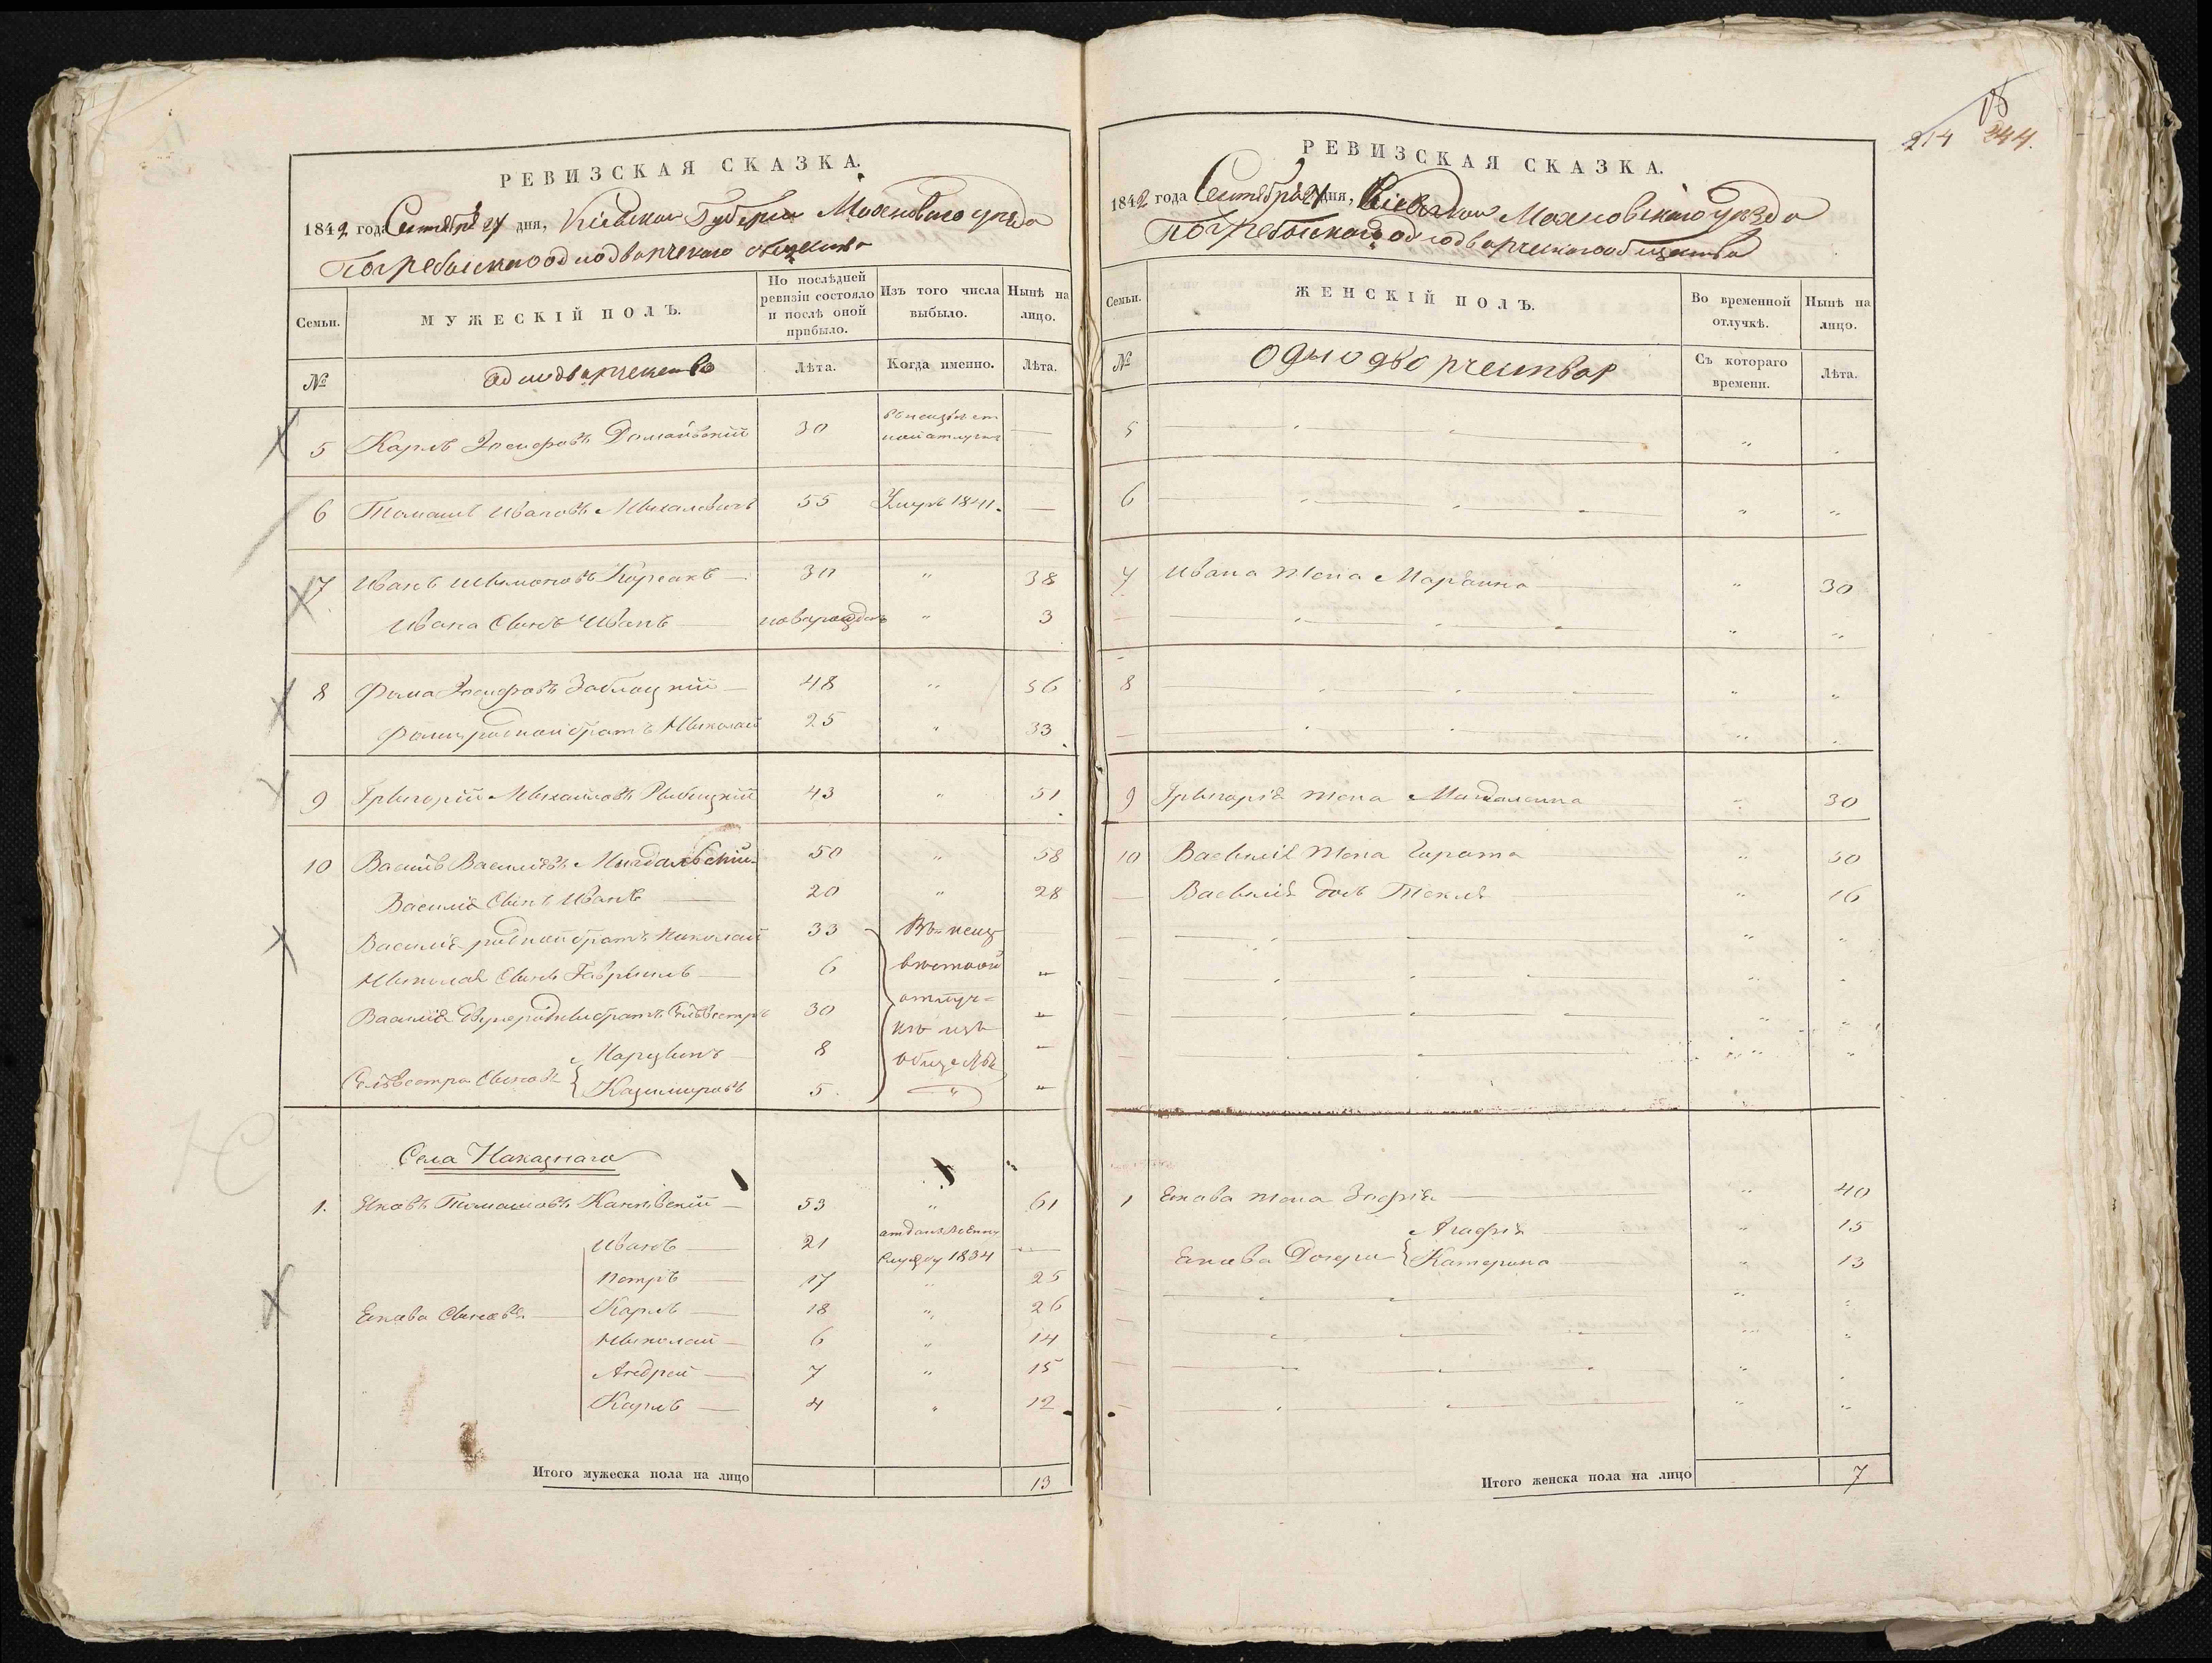 18
214 244.
РЕВИЗСКАЯ СКАЗКА.
1842 года Сентября 27 дня, Кіевской Губерніи Махновскаго уезда
Погребыскаго однодворческаго общества
Семьи.
МУЖЕСКІЙ ПОЛЪ.
По послѣдней ревизіи состояло и послѣ оной прибыло.
Изъ того числа выбыло.
Нынѣ на лицо.
№
Лѣта.
Когда именно.
Лѣта.
5 Карлъ Іосифовъ 30 —
6 Томашъ Ивановъ Михалевичъ 55 Умеръ 1841. —
7 Иванъ Шимоновъ Корсакъ — 30 " 38
Ивана Сынъ Иванъ — новорожденъ " 3
8 Фома Іосифовъ Заблоцкій — 48 " 56
Фомы родной братъ Николай 25 " 33
9 Григорій Михайловъ Рыбицкій 43 " 51
10 Василь Василіевъ Мигдальскій 50 " 58
Василія Сынъ Иванъ — 20 " 28
Василія родной братъ Николай 33 Въ неиз —
Николая Сынъ Гаврыилъ — 6 вестной "
Василія двуюродный братъ Сильвестръ 30 отлуч= "
Марцынъ — 8 "
Сильвестра Сыновья { Казимировъ 5 " "
Села Наказнаго
1. Яковъ Томашовъ — 53 " 61
Иванъ — 21 отданъ военну службу 1834 —
Петръ — 17 " 25
Якова Сыновья — Карлъ — 18 " 26
Николай — 6 " 14
Андрей — 7 " 15
Карлъ — 4 " 12
Итого мужеска пола на лицо 13
РЕВИЗСКАЯ СКАЗКА.
1842 года Сентября 27 дня, Кіевской Махновскаго уезда
Погребыскаго однодворческаго общества
Семьи.
ЖЕНСКІЙ ПОЛЪ.
Во временной отлучкѣ.
Нынѣ на лицо.
№
Съ котораго времени.
Лѣта.
5 — " — " — " "
6 — " — " — " "
7 Ивана жена Марьанна " 30
— " — " — " "
8 — " — " — " "
— " — " — " "
9 Григорія жена Магдалина " 30
10 Василія жена " 50
— Василія дочь Текля " 16
— " — " — " "
— " — " — " "
— " — " — " "
— " — " — " "
1 Якова жена Зофія — " 40
Агафія " 15
Якова Дочери { Катерина " 13
— " — " — " "
— " — " — " "
— " — " — " "
— " — " — " "
Итого женска пола на лицо 7